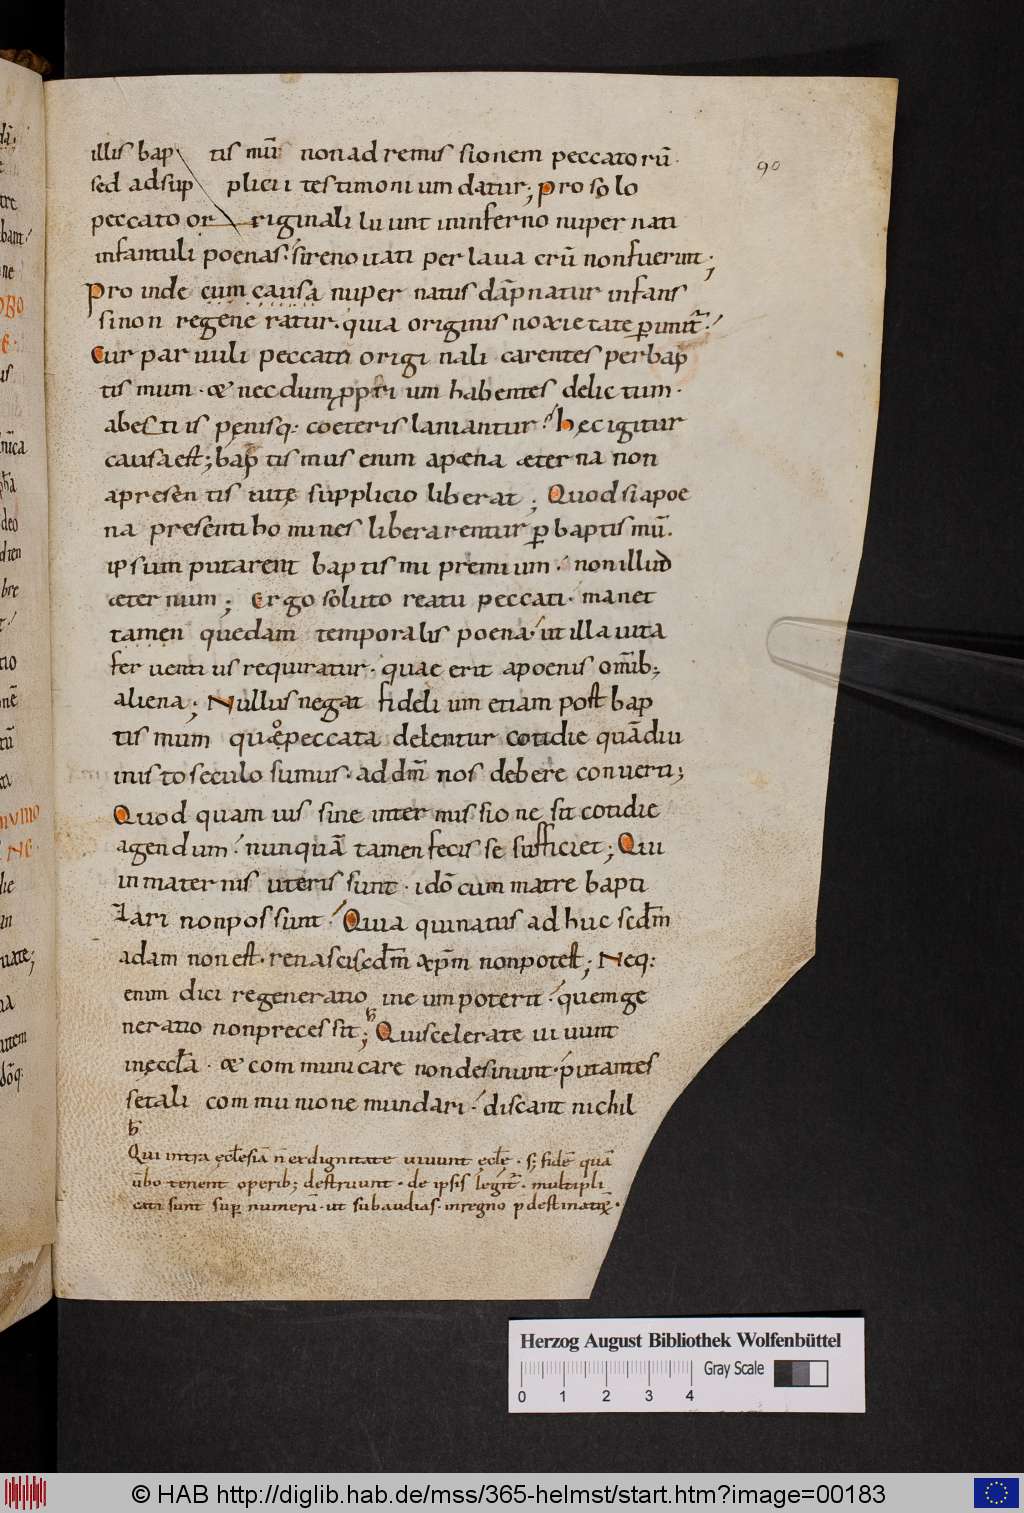 illis bap tis mū nonad remis sionem peccatorū.
sed adsup plicii testimoni um datur; pro solo
peccato or riginali luunt ininferno nuper nati
infantuli poenas. sirenouati per laua crū nonfuerint;
Pro inde cum causa nuper natus dāpnatur infans
sinon regene ratur. quia originis noxietate ꝑimit̄.
Cur par uuli peccati origi nali carentes perbap
tis mum. & necdum ꝓpri um habentes delic tum.
abesti is pęnisq: coeteris laniantur? hęc igitur
causa est; bap tis mus enim apœna æter na non
apresen tis uitę supplicio liberat; Quod siapoe
na presenti homines liberarentur ꝑ baptis mū.
ipsum putarent bap tis mi premium. nonillud
æter num; Ergo soluto reatu peccati. manet
tamen quędam temporalis poena. ut illa uita
fer uenti us requiratur. quae erit apoenis om̄ib;
aliena; Nullus negat fideli um etiam post bap
tis mum quo peccata delentur cotidie quādiu
inisto seculo sumus. ad dn̄m nos debere conuerti;
Quod quam uis sine inter mis sio ne sit cotidie
agendum. nunquā tamen fecis se sufficiet; Qui
inmater nis uteris sunt. idō cum matre bapti
zari nonpos sunt. Quia quinatus ad huc scdm̄
adam non est. renascisedm̄ xp̄m nonpotest; Neq:
enim dici regeneratio ineumpoterit. quemge
neratio nonpreces sit; Quiscelerate uiuunt
inęcclā. & communicare nondesinunt. putantes
setali com mu nione mundari. discant nichil
Qui intra ęclesiā n̄ erdignitate uiuunt ęclę. s; fidē quā
ūbo tenent operib; destruunt. de ipsis legit̄. multipli
cati sunt sup̄ numerū. ut subaudias. inregno p̄destinatıȩ.
90
Herzog August Bibliothek Wolfenbüttel
Gray Scale
0 1 2 3 4
© HAB http://diglib.hab.de/mss/365-helmst/start.htm?image=00183